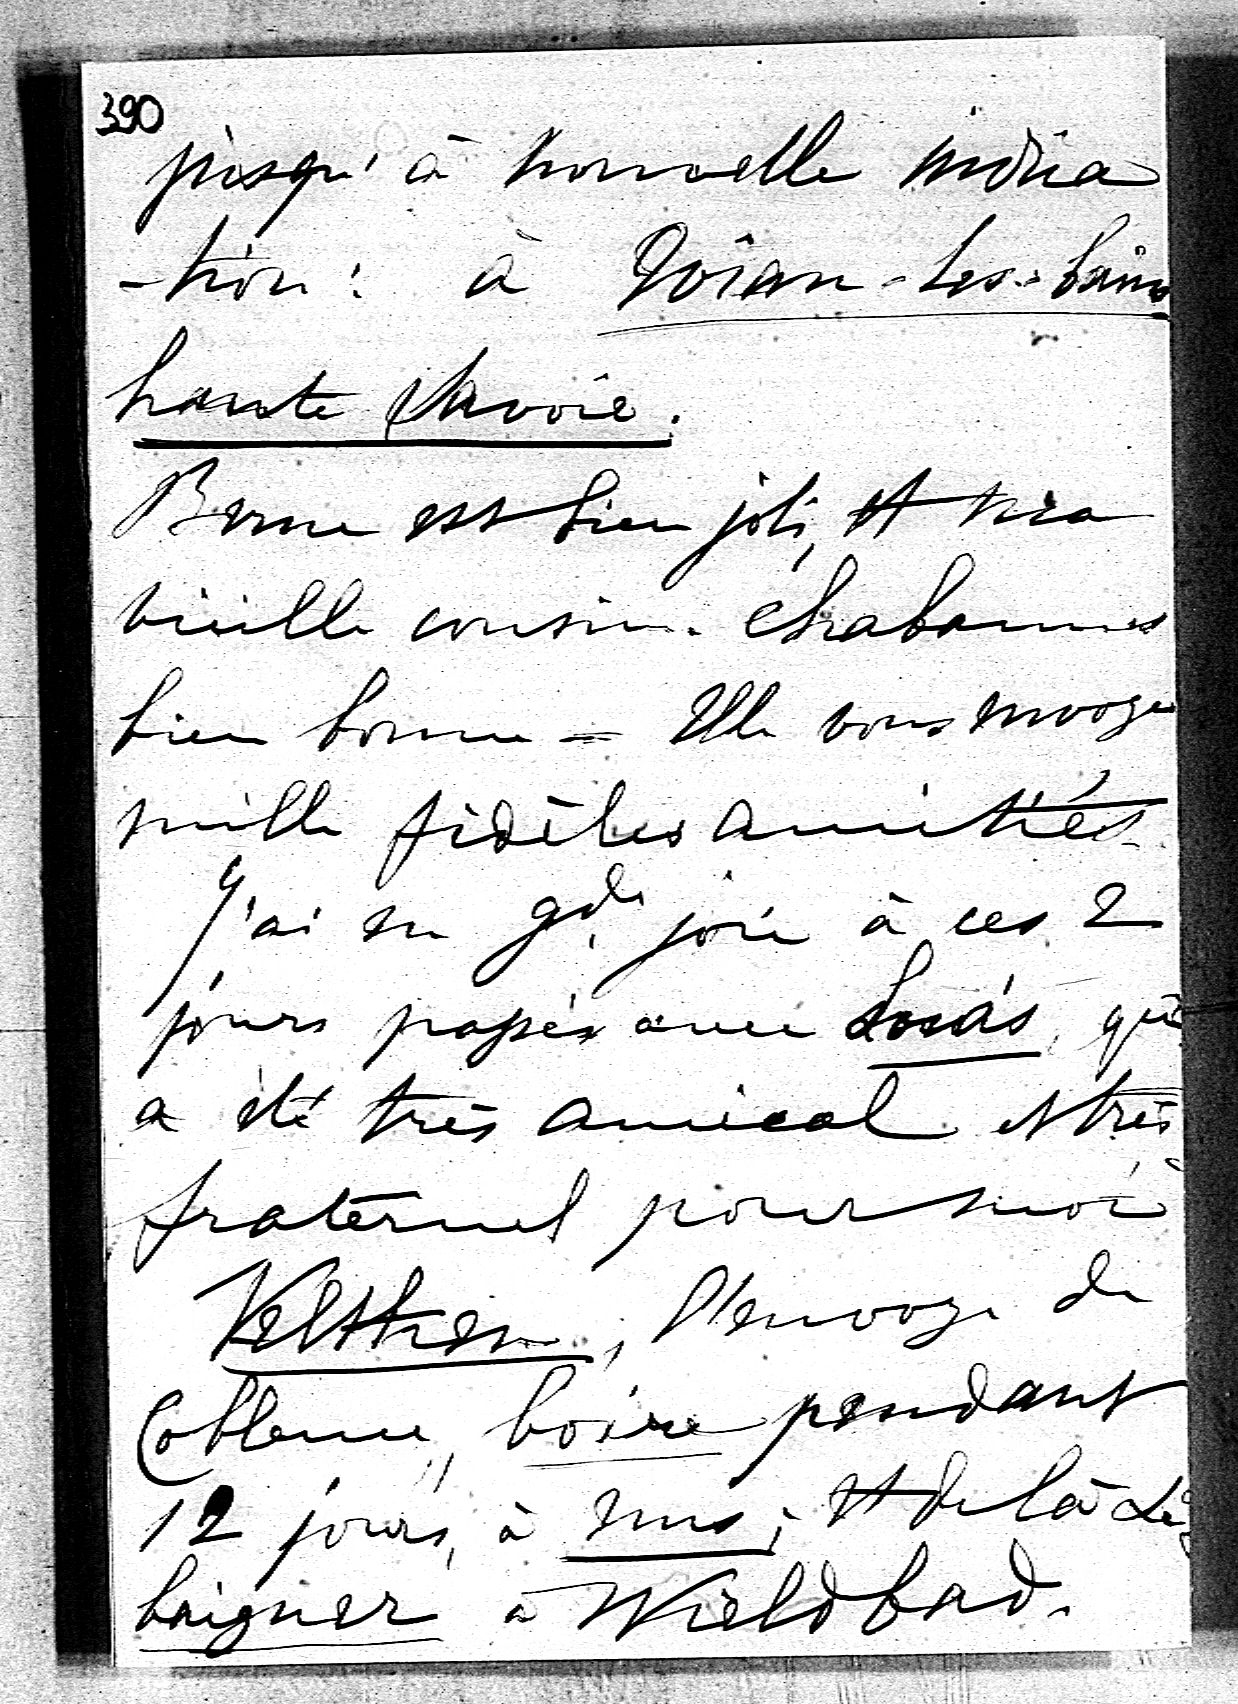 390
jusqu'à nouvelle indica
-tion: à Evian-les-bains
haute Savoie.
Berne est bien joli, et ma
vieille cousine Chabannes
bien bonne = Elle vous envoye
mille fidèles amitiés.
J'ai eu gde joie à ces 2
jours passés avec Louis, qui
a été très amical et très
fraternel pour moi
Velthen, l'envoye de
Coblence, boire pendant
12 jours, à Ems; et de là se
baigner à Wieldbad.